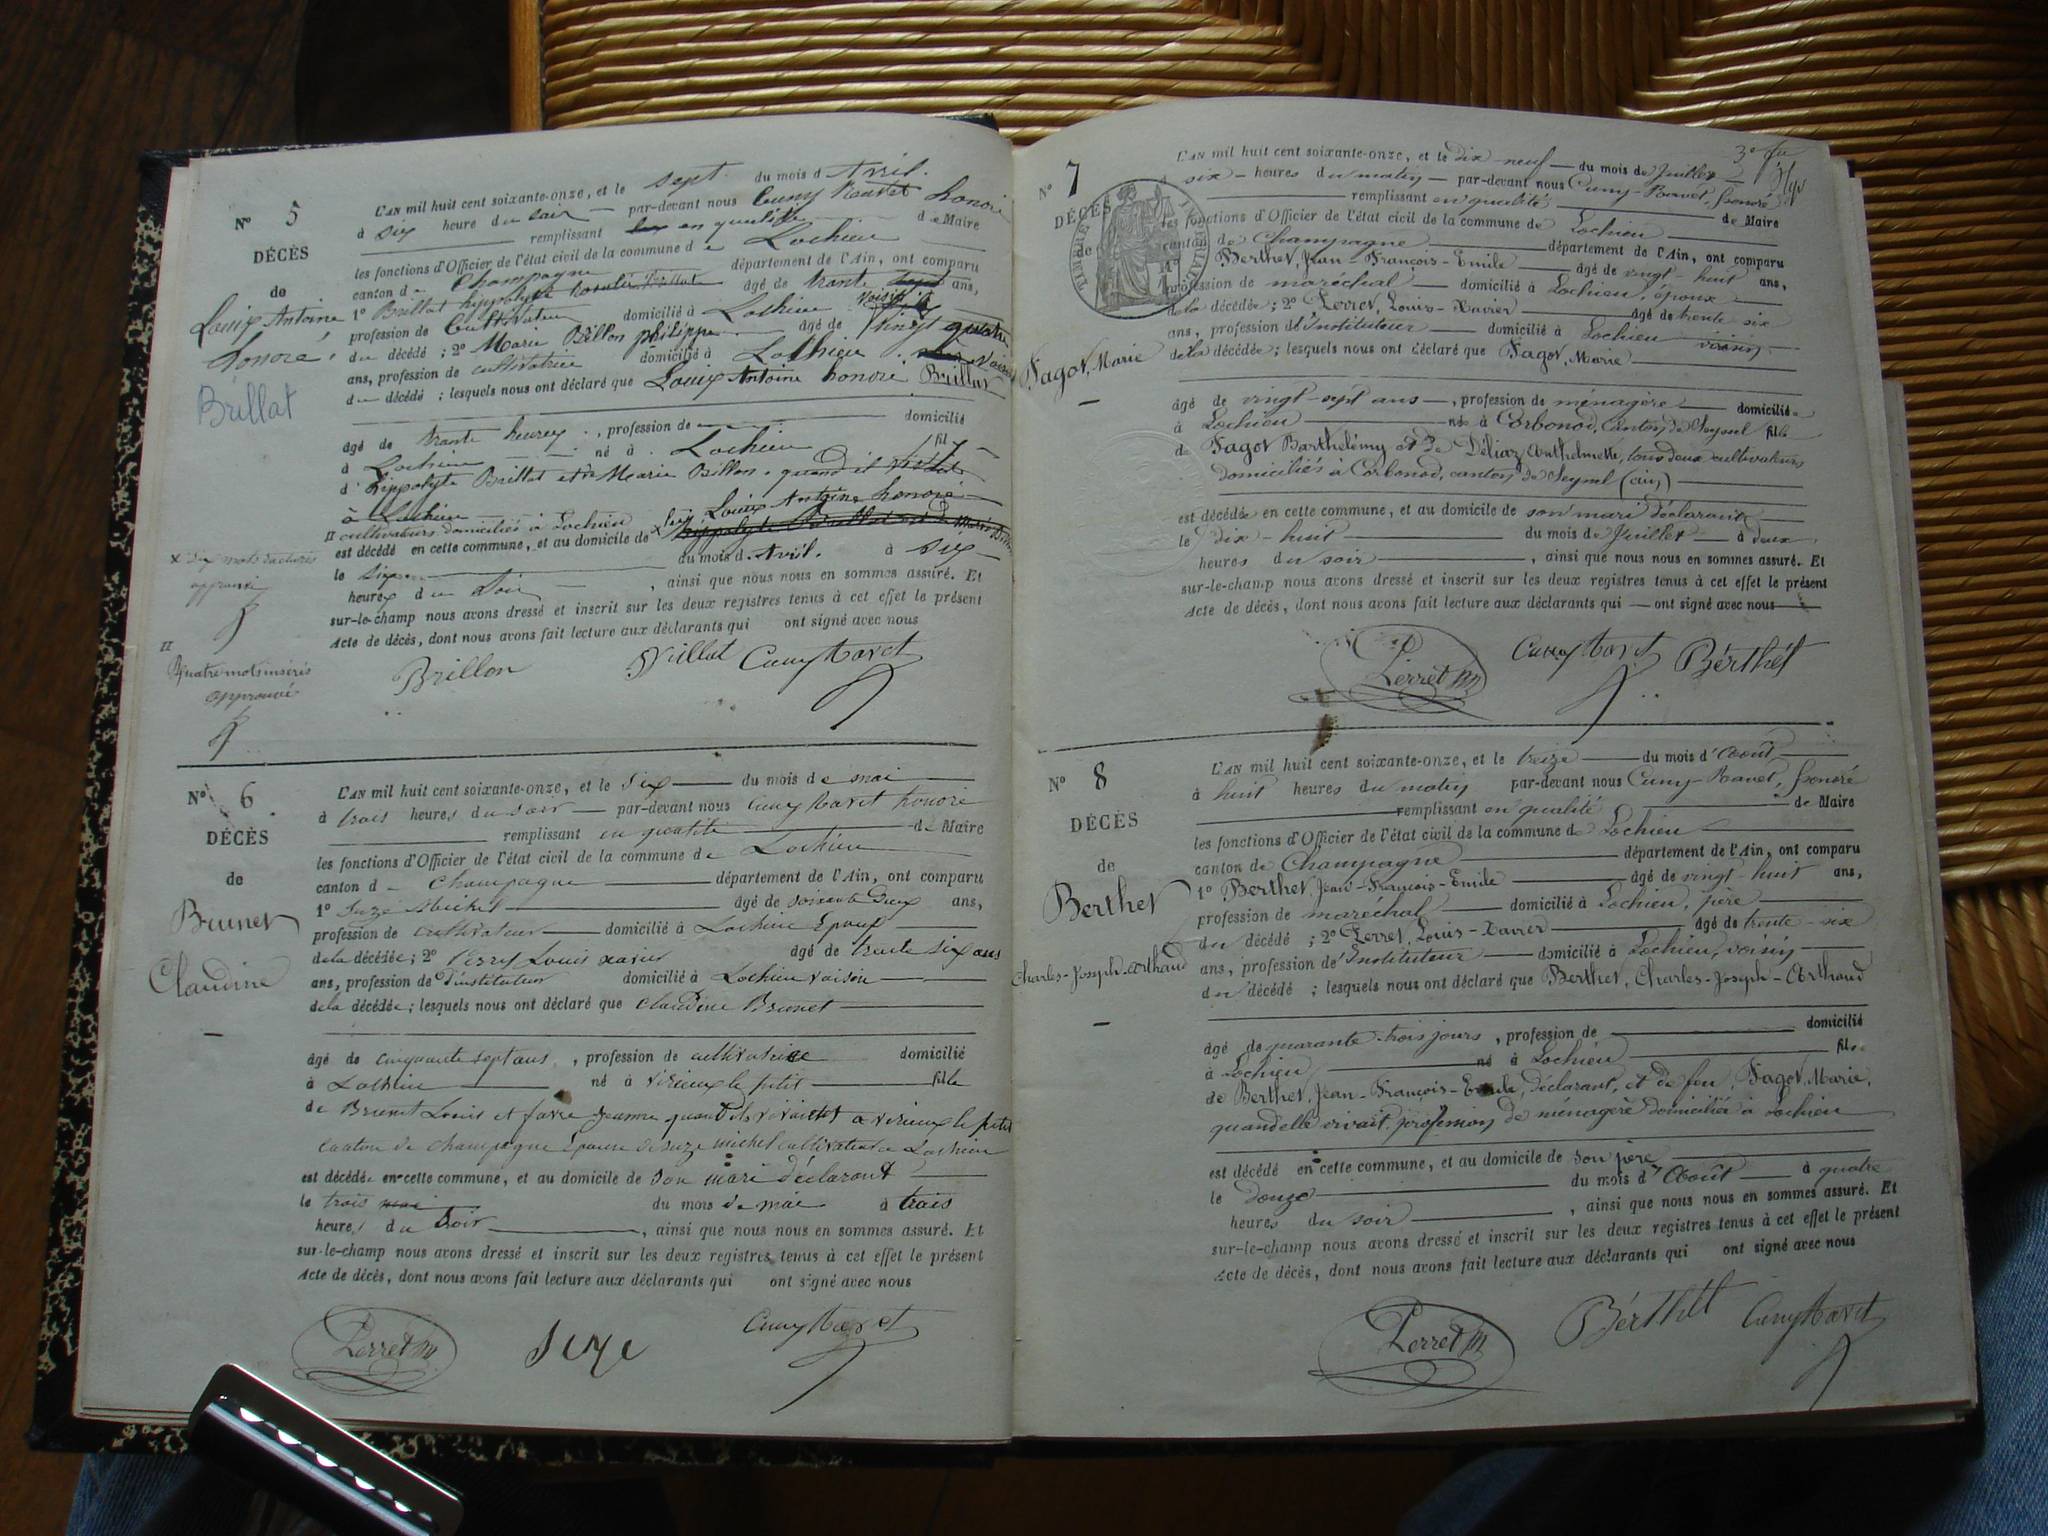 N° 5
DÉCÈS
de
Louis Antoine
honoré
Brillat
L'AN mil huit cent soixante-onze, et le sept du mois d'Avril.
à six heure du soir par-devant nous Cuny Ravet honoré
remplissant en qualité de Maire
les fonctions d'Officier de l'état civil de la commune de Lochieu
canton de Champagne département de l'Ain, ont comparu
1° Brillat hippolyte âgé de trante ans,
profession de Cultivateur domicilié à Lochieu
du décédé ; 2° Marie Brillon philippe âgé de vingt quatre
ans, profession de cultivatrice domicilié à Lochieu
du décédé ; lesquels nous ont déclaré que Louis Antoine honoré Brillat
âgé de trante heures, profession de domicilié
à Lochieu né à Lochieu fil
d'hippolyte Brillat et de Marie Brillon. quand il
à Lochieu
II cultivateurs domiciliés à Lochieu Louis Antoine honoré
est décédé en cette commune, et au domicile de
le six du mois d'Avril. à six
heures du soir, ainsi que nous nous en sommes assuré. Et
sur-le-champ nous avons dressé et inscrit sur les deux registres tenus à cet effet le présent
Acte de décès, dont nous avons fait lecture aux déclarants qui ont signé avec nous
x dix mots raturés
approuvé
II
Quatre mots insérés
approuvé
Brillon Brillat Cuny Ravet
N° 6
DÉCÈS
de
Brunet
Claudine
L'AN mil huit cent soixante-onze, et le six du mois de mai
à trois heures du soir par-devant nous Cuny Ravet honoré
remplissant en qualité de Maire
les fonctions d'Officier de l'état civil de la commune de Lochieu
canton d champagne département de l'Ain, ont comparu
1° Suze Michel âgé de soixante Deux ans,
profession de cultivateur domicilié à Lochieu Epoux
de la décédée ; 2° Perry Louis xavier âgé de trente six ans
ans, profession d'instituteur domicilié à Lochieu voisin
de la décédée ; lesquels nous ont déclaré que Claudine Brunet
âgé de cinquante sept ans, profession de cultivatrice domicilié
à Lochieu né à virieux le petit fille
de Brunet Louis et favre jeanne quand ils vivaient a virieux le petit
canton de champagne Epouse de suze michel cultivateur a Lochieu
est décédée en cette commune, et au domicile de son mari déclarant
le trois mai du mois de mai à trois
heures du soir, ainsi que nous nous en sommes assuré. Et
sur-le-champ nous avons dressé et inscrit sur les deux registres tenus à cet effet le présent
Acte de décès, dont nous avons fait lecture aux déclarants qui ont signé avec nous
Perret Suze Cuny Ravet
3e fu
N° 7
DÉCÈS
de
Fagot, Marie
L'AN mil huit cent soixante-onze, et le dix neuf du mois de Juillet
six heures du matin par-devant nous Cuny-Ravet, Honoré
remplissant en qualité de Maire
les fonctions d'Officier de l'état civil de la commune de Lochieu
canton de Champagne département de l'Ain, ont comparu
1° Berthet, Jean-François-Emile âgé de vingt-huit ans,
profession de maréchal domicilié à Lochieu, époux
de la décédée ; 2° Perret, Louis-Xavier âgé de trente-six
ans, profession d'Instituteur domicilié à Lochieu voisin
de la décédée ; lesquels nous ont déclaré que Fagot, Marie
âgé de vingt-sept ans, profession de ménagère domiciliée
à Lochieu née à Corbonod, canton de Seyssel fille
de Fagot Barthélémy et de Déliaz Anthelmette, tous deux cultivateurs
domiciliés à Corbonod, canton de Seyssel (ain)
est décédée en cette commune, et au domicile de son mari déclarant
le dix-huit du mois de Juillet à deux
heures du soir, ainsi que nous nous en sommes assuré. Et
sur-le-champ nous avons dressé et inscrit sur les deux registres tenus à cet effet le présent
Acte de décès, dont nous avons fait lecture aux déclarants qui ont signé avec nous
Perret Cuny Ravet Bérthét
N° 8
DÉCÈS
de
Berthet
Charles-Joseph-Arthaud
L'AN mil huit cent soixante-onze, et le treize du mois d'Août
à huit heures du matin par-devant nous Cuny-Ravet, Honoré
remplissant en qualité de Maire
les fonctions d'Officier de l'état civil de la commune de Lochieu
canton de Champagne département de l'Ain, ont comparu
1° Berthet, Jean-François-Emile âgé de vingt-huit ans,
profession de maréchal domicilié à Lochieu, père
du décédé ; 2° Perret, Louis-Xavier âgé de trente-six
ans, profession d'Instituteur domicilié à Lochieu, voisin
du décédé ; lesquels nous ont déclaré que Berthet, Charles-Joseph-Arthaud
âgé de quarante-trois jours, profession de domicilié
à Lochieu né à Lochieu fils
de Berthet, Jean-François-Emile, déclarant, et de feu, Fagot, Marie,
quand elle vivait, profession de ménagère domiciliée à Lochieu
est décédé en cette commune, et au domicile de son père
le douze du mois d'Août à quatre
heures du soir, ainsi que nous nous en sommes assuré. Et
sur-le-champ nous avons dressé et inscrit sur les deux registres tenus à cet effet le présent
Acte de décès, dont nous avons fait lecture aux déclarants qui ont signé avec nous
Perret Bérthét Cuny Ravet